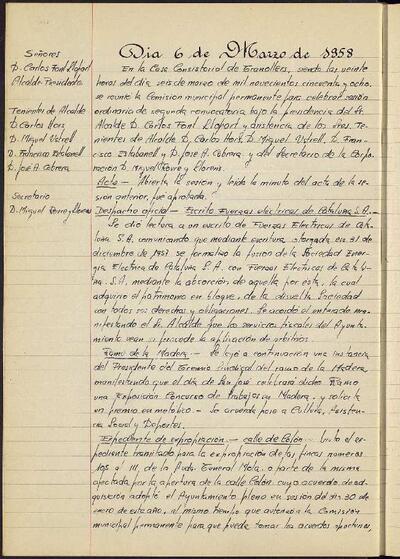 Señores
D. Carlos Font Llopart
Alcalde-Presidente
Tenientes de Alcalde
D. Carlos Host
D. Miguel Vetrell
D. Francisco Estabanell
D. José A. Cabrera
Secretario
D. Miguel Roure y Llorens
Dia 6 de Marzo de 1958
En la Casa Consistorial de Granollers, siendo las veinte
horas del dia seis de marzo de mil novecientos cincuenta y ocho,
se reunió la Comision municipal permanente para celebrar sesión
ordinaria de segunda convocatoria bajo la presidencia del Sr.
Alcalde D. Carlos Font Llopart y asistencia de los Sres. Te-
nientes de Alcalde D. Carlos Host, D. Miguel Vetrell, D. Fran-
cisco Estabanell y D. José A. Cabrera, y del Secretario de la Corpo-
ración D. Miguel Roure y Llorens.
Acta — Abierta la sesion y leida la minuta del acta de la se-
sion anterior, fue aprobada.
Despacho oficial — Escrito Fuerzas electricas de Cataluña S.A. —
Se dió lectura a un escrito de Fuerzas Electricas de Cata-
luña S.A. comunicando que mediante escritura otorgada en 31 de
diciembre de 1957 se formalizó la fusion de la Sociedad Ener-
gia Electrica de Cataluña S.A. con Fuerzas Electricas de Catalu-
ña S.A, mediante la absorción de aquella por esta, la cual
adquirió el patrimonio en bloque, de la disuelta Sociedad
con todos sus derechos y obligaciones. Se acordó el enterado ma-
nifestando el Sr. Alcalde que los servicios fiscales del Ayunta-
miento vean si procede la aplicación de arbitrios.
Ramo de la Madera — Se leyó a continuacion una instancia
del Presidente del Gremio Sindical del ramo de la Madera
manifestando que el dia de San José celebrará dicho Ramo
una Exposición Concurso de Trabajos en Madera, y solicita
un premio en metalico. — Se acuerda pase a Cultura, Asistencia
Social y Deportes.
Expediente de expropiación — calle de Colón — Visto el ex-
pediente tramitado para la expropiación de las fincas numeros
109 al 111, de la Avda. General Mola, o parte de la misma
afectada por la apertura de la calle Colón cuyo acuerdo de ad-
quisición adoptó el Ayuntamiento pleno en sesion del dia 30 de
enero de este año, al mismo tiempo que autorizó a la Comision
municipal permanente para que pueda tomar los acuerdos oportunos,